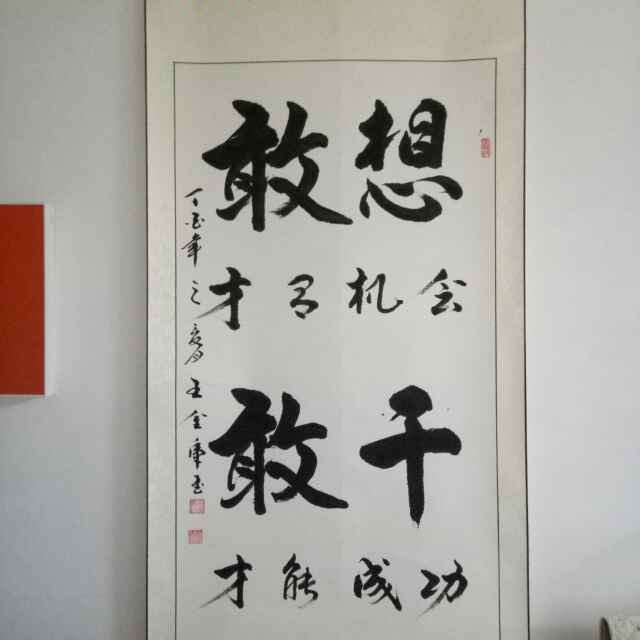 敢想
才有机会
敢干
才能成功
丁酉年之夏 王金虎书